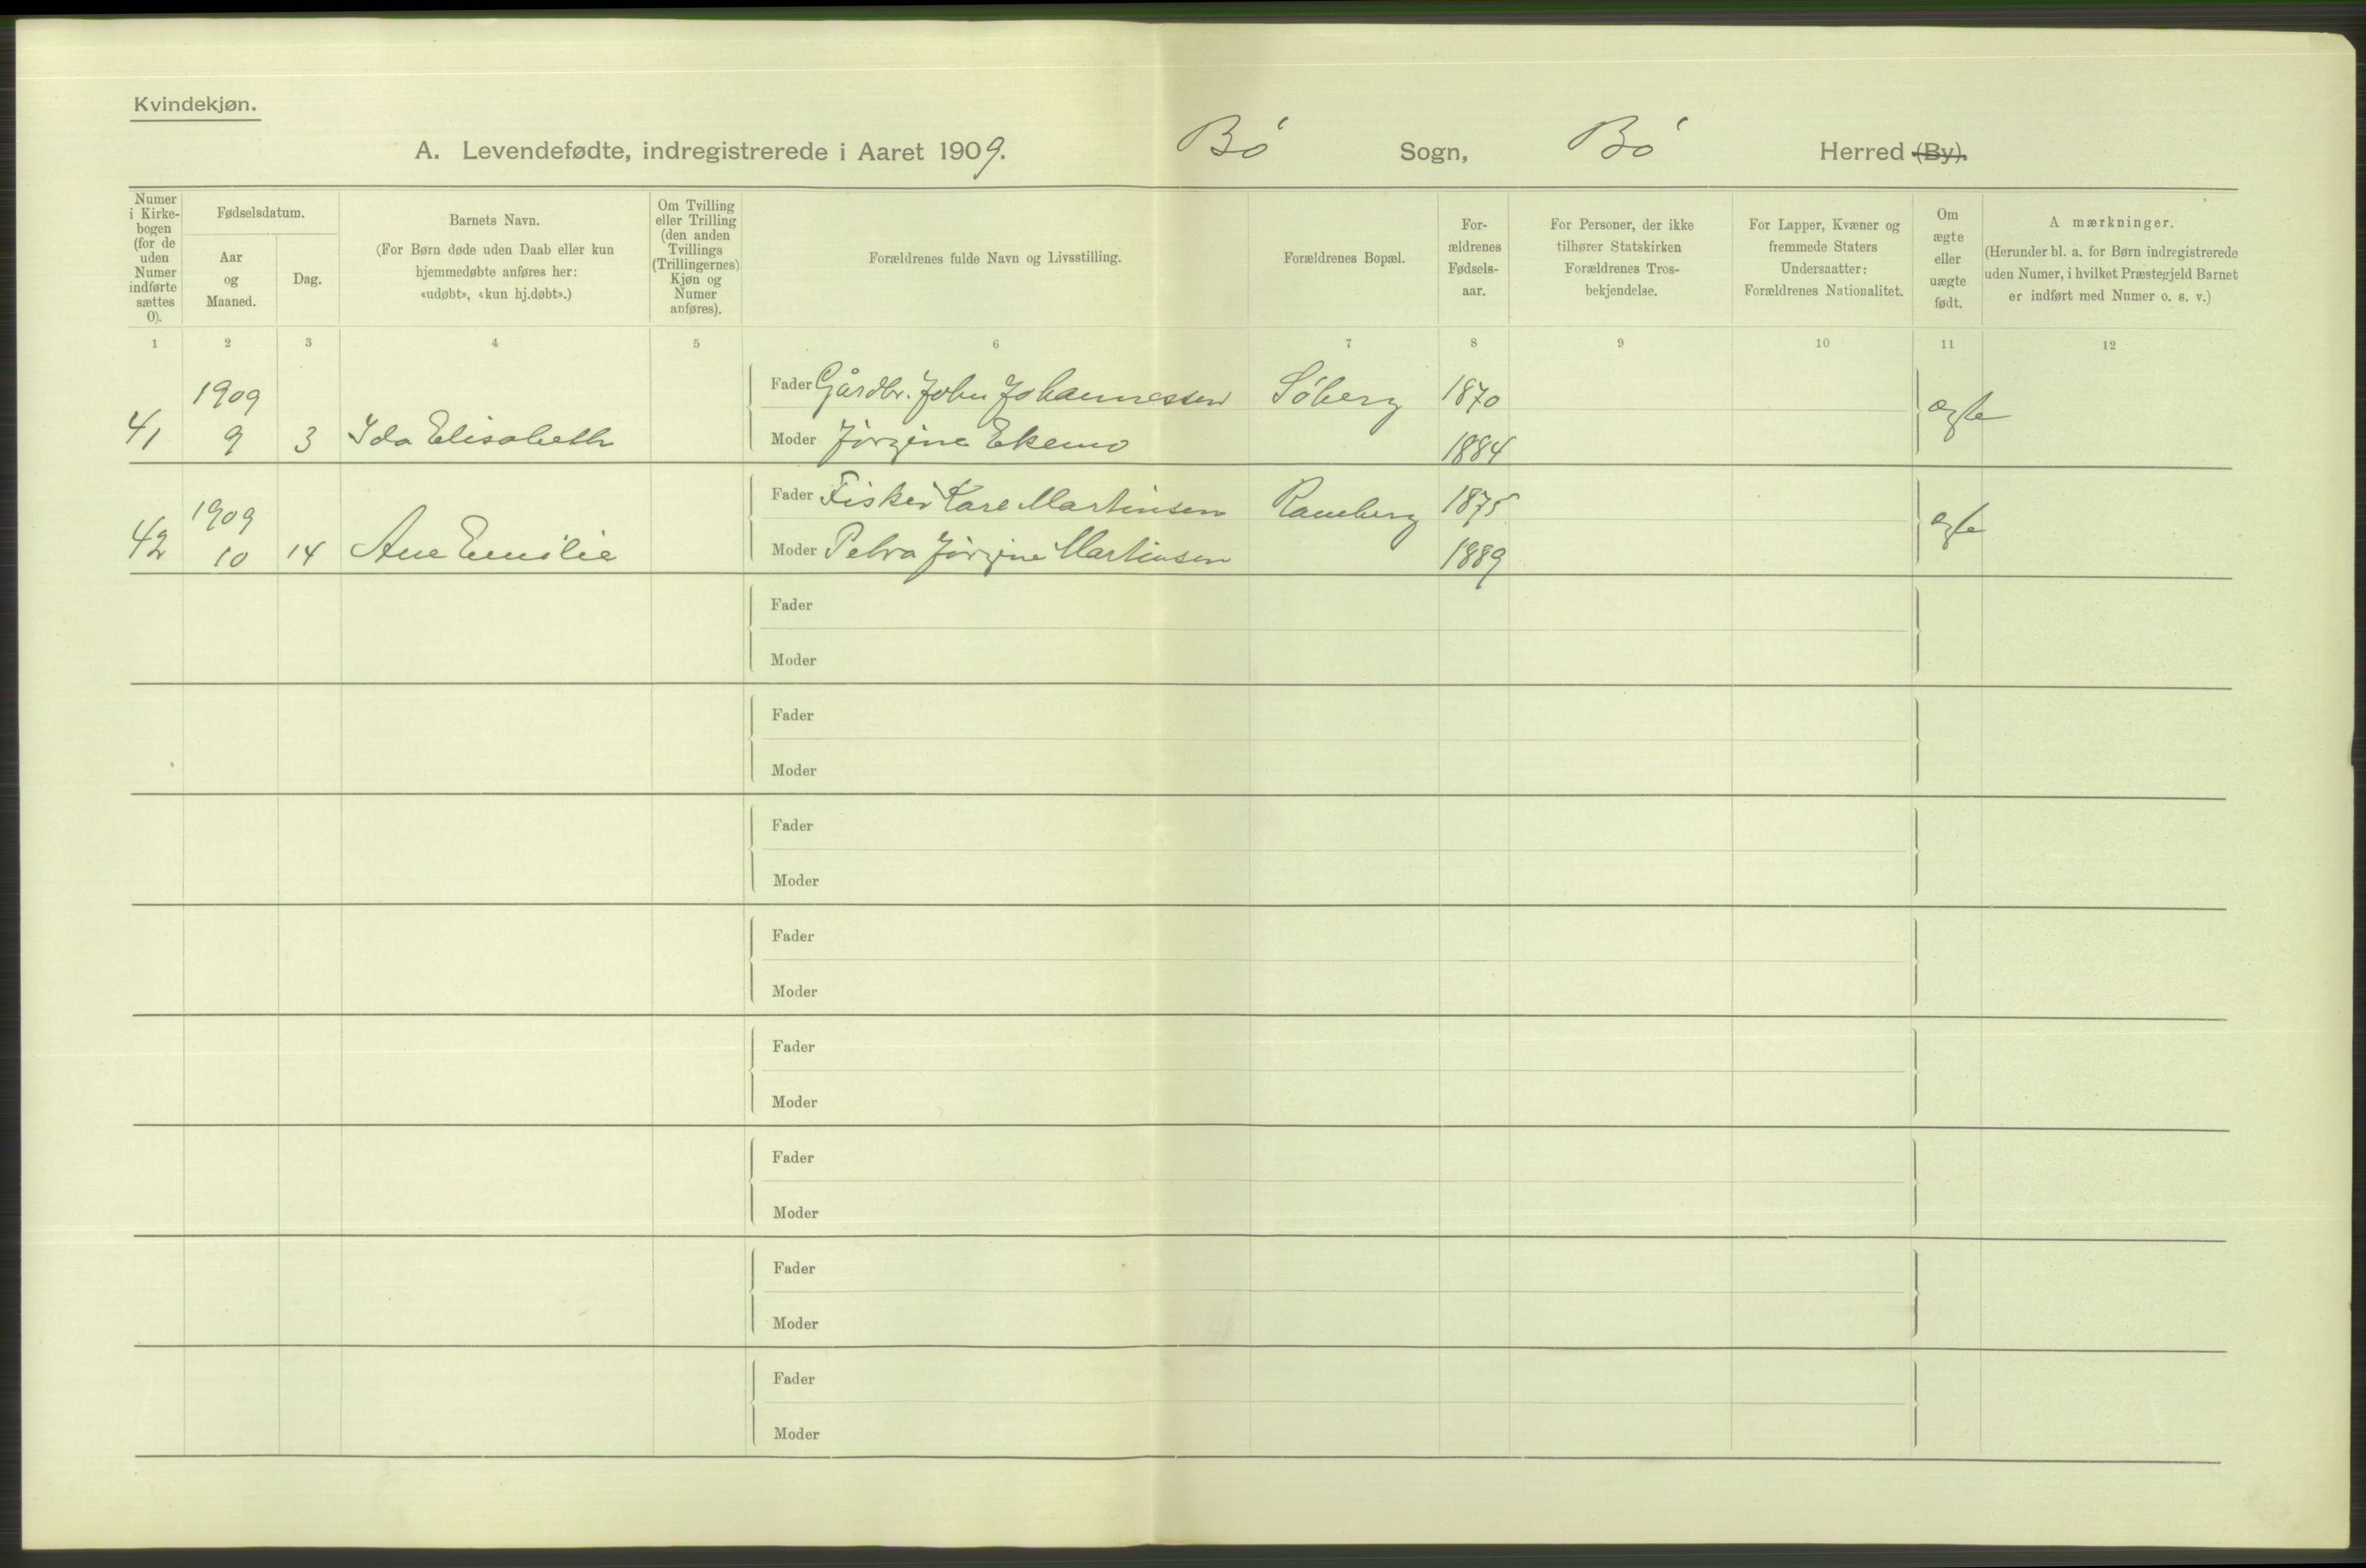 Kvindekjøn.
A. Levendefødte, indregistrerede i Aaret 1909. Bø Sogn, Bø Herred (By).
Numer i Kirkebogen (for de uden Numer indførte sættes 0).
Fødselsdatum.
Aar og Maaned.
Dag.
Barnets Navn.
(For Børn døde uden Daab eller kun
hjemmedøbte anføres her:
«udøbt», «kun hj.døbt».)
Om Tvilling
eller Trilling
(den anden
Tvillings
(Trillingernes)
Kjøn og
Numer
anføres).
Forældrenes fulde Navn og Livsstilling.
Forældrenes Bopæl.
For-
ældrenes
Fødsels-
aar.
For Personer, der ikke
tilhører Statskirken
Forældrenes Tros-
bekjendelse.
For Lapper, Kvæner og
fremmede Staters
Undersaatter:
Forældrenes Nationalitet.
Om
ægte
eller
uægte
født.
A mærkninger.
(Herunder bl. a. for Børn indregistrerede
uden Numer, i hvilket Præstegjeld Barnet
er indført med Numer o. s. v.)
1 2 3 4 5 6 7 8 9 10 11 12
1909 Fader Gårdbr. John Johannessen Søberg 1870 ægte
41 9 3 Ida Elisabeth Moder Jørgine Ekemo 1884
1909 Fader Fisker Karl Martinsen Ramberg 1875 ægte
42 10 14 Ane Emilie Moder Petra Jørgine Martinsen 1889
Fader
Moder
Fader
Moder
Fader
Moder
Fader
Moder
Fader
Moder
Fader
Moder
Fader
Moder
Fader
Moder